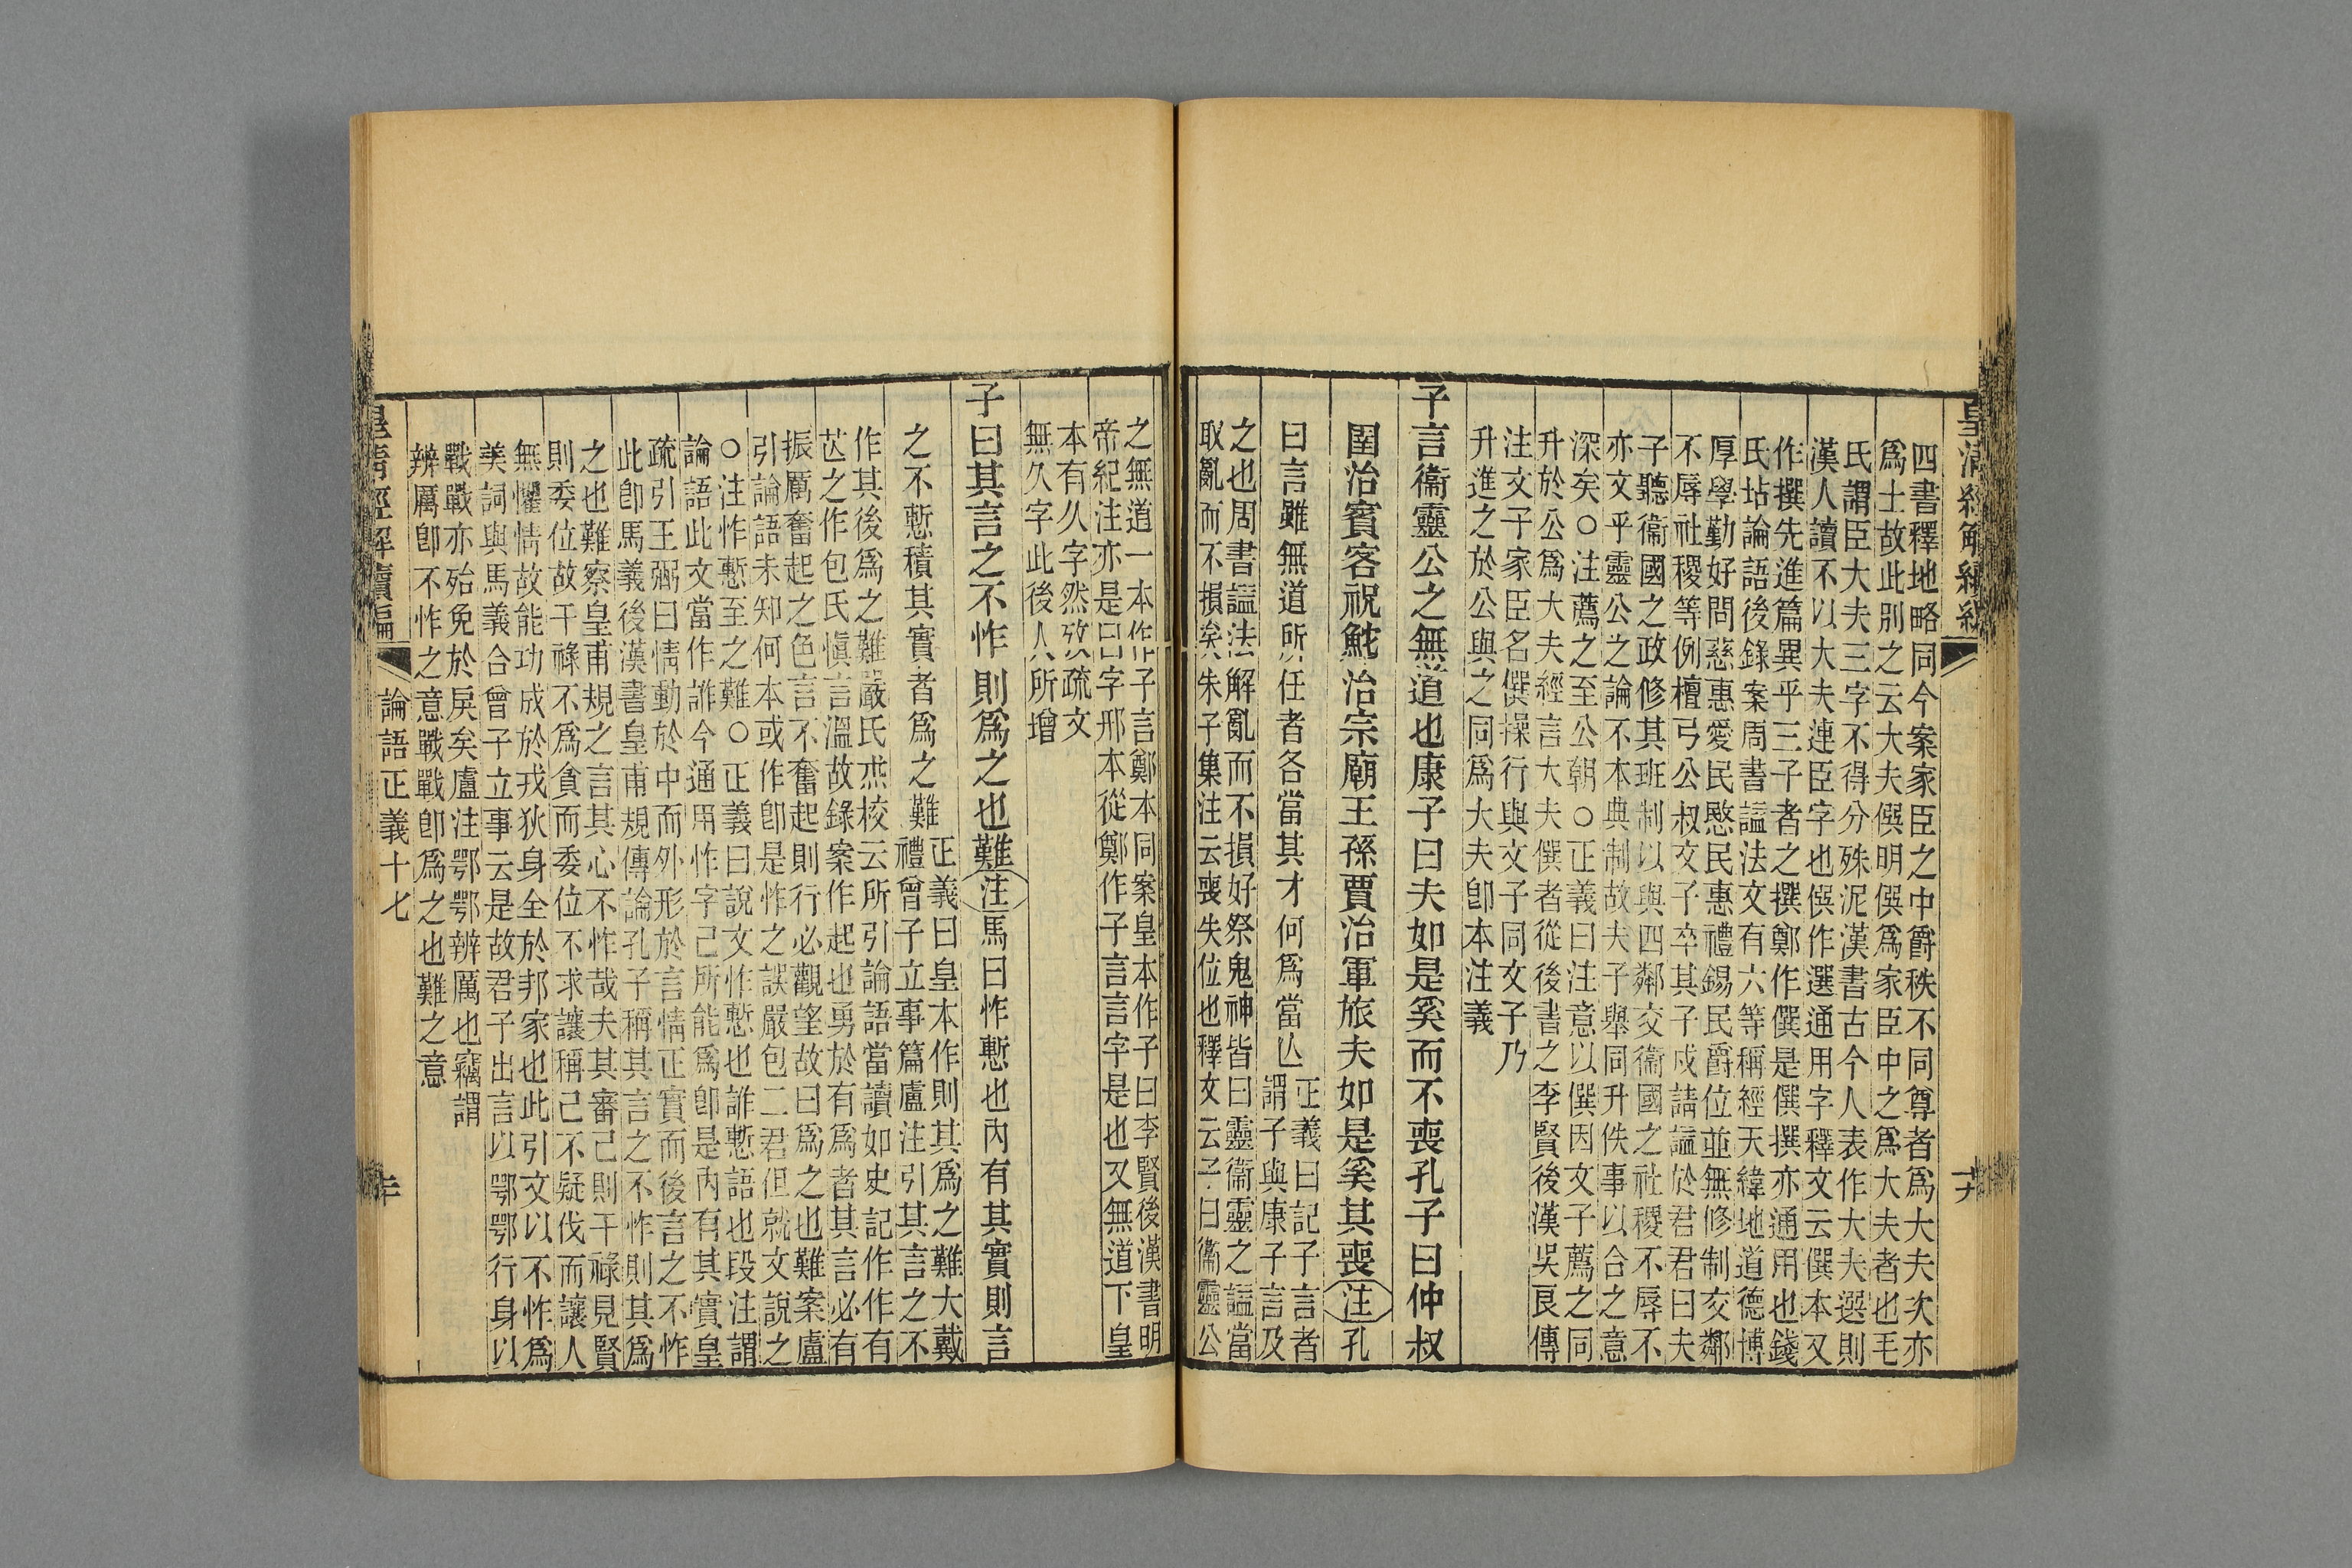 皇清經解續編
四書釋地略同今案家臣之中爵秩不同尊者爲大夫次亦
爲士故此別之云大夫僎明僎爲家臣中之爲大夫者也毛
氏謂臣大夫三字不得分殊泥漢書古今人表作大夫選則
漢人讀不以大夫連臣字也僎作選通用字釋文云僎本又
作撰先進篇異乎三子者之撰鄭作僎是僎撰亦通用也錢
氏坫論語後錄案周書諡法文有六等稱經天緯地道德博
厚學勤好問慈惠愛民愍民惠禮錫民爵位並無修制交鄰
不辱社稷等例檀弓公叔文子卒其子戍請諡於君君曰夫
子聽衞國之政修其班制以與四鄰交衞國之社稷不辱不
亦文乎靈公之論不本典制故夫子舉同升佚事以合之意
深矣○注薦之至公朝○正義曰注意以僎因文子薦之同
升於公爲大夫經言大夫僎者從後書之李賢後漢吳良傳
注文子家臣名僎操行與文子同文子乃
升進之於公與之同爲大夫卽本注義
子言衞靈公之無道也康子曰夫如是奚而不喪孔子曰仲叔
圉治賓客祝鮀治宗廟王孫賈治軍旅夫如是奚其喪注孔
曰言雖無道所任者各當其才何爲當亡
正義曰記子言者
謂子與康子言及
之也周書諡法解亂而不損好祭鬼神皆曰靈衞靈之諡當
取亂而不損矣朱子集注云喪失位也釋文云子曰衞靈公
之無道一本作子言鄭本同案皇本作子曰李賢後漢書明
帝紀注亦是曰字邢本從鄭作子言言字是也又無道下皇
本有久字然攷疏文
無久字此後人所增
子曰其言之不怍則爲之也難注馬曰怍慙也內有其實則言
之不慙積其實者爲之難
正義曰皇本作則其爲之難大戴
禮曾子立事篇盧注引其言之不
作其後爲之難嚴氏杰校云所引論語當讀如史記作作有
芒之作包氏愼言溫故錄案作起也勇於有爲者其言必有
振厲奮起之色言不奮起則行必觀望故曰爲之也難案盧
引論語未知何本或作卽是怍之誤嚴包二君但就文說之
○注怍慙至之難○正義曰說文怍慙也詐慙語也段注謂
論語此文當作詐今通用怍字己所能爲卽是內有其實皇
疏引王弼曰情動於中而外形於言情正實而後言之不怍
此卽馬義後漢書皇甫規傳論孔子稱其言之不怍則其爲
之也難察皇甫規之言其心不怍哉夫其審己則干祿見賢
則委位故干祿不爲貪而委位不求讓稱己不疑伐而讓人
無懼情故能功成於戎狄身全於邦家也此引文以不怍爲
美詞與馬義合曾子立事云是故君子出言以鄂鄂行身以
戰戰亦殆免於戾矣盧注鄂鄂辨厲也竊謂
辨厲卽不怍之意戰戰卽爲之也難之意
皇清經解續編
論語正義十七